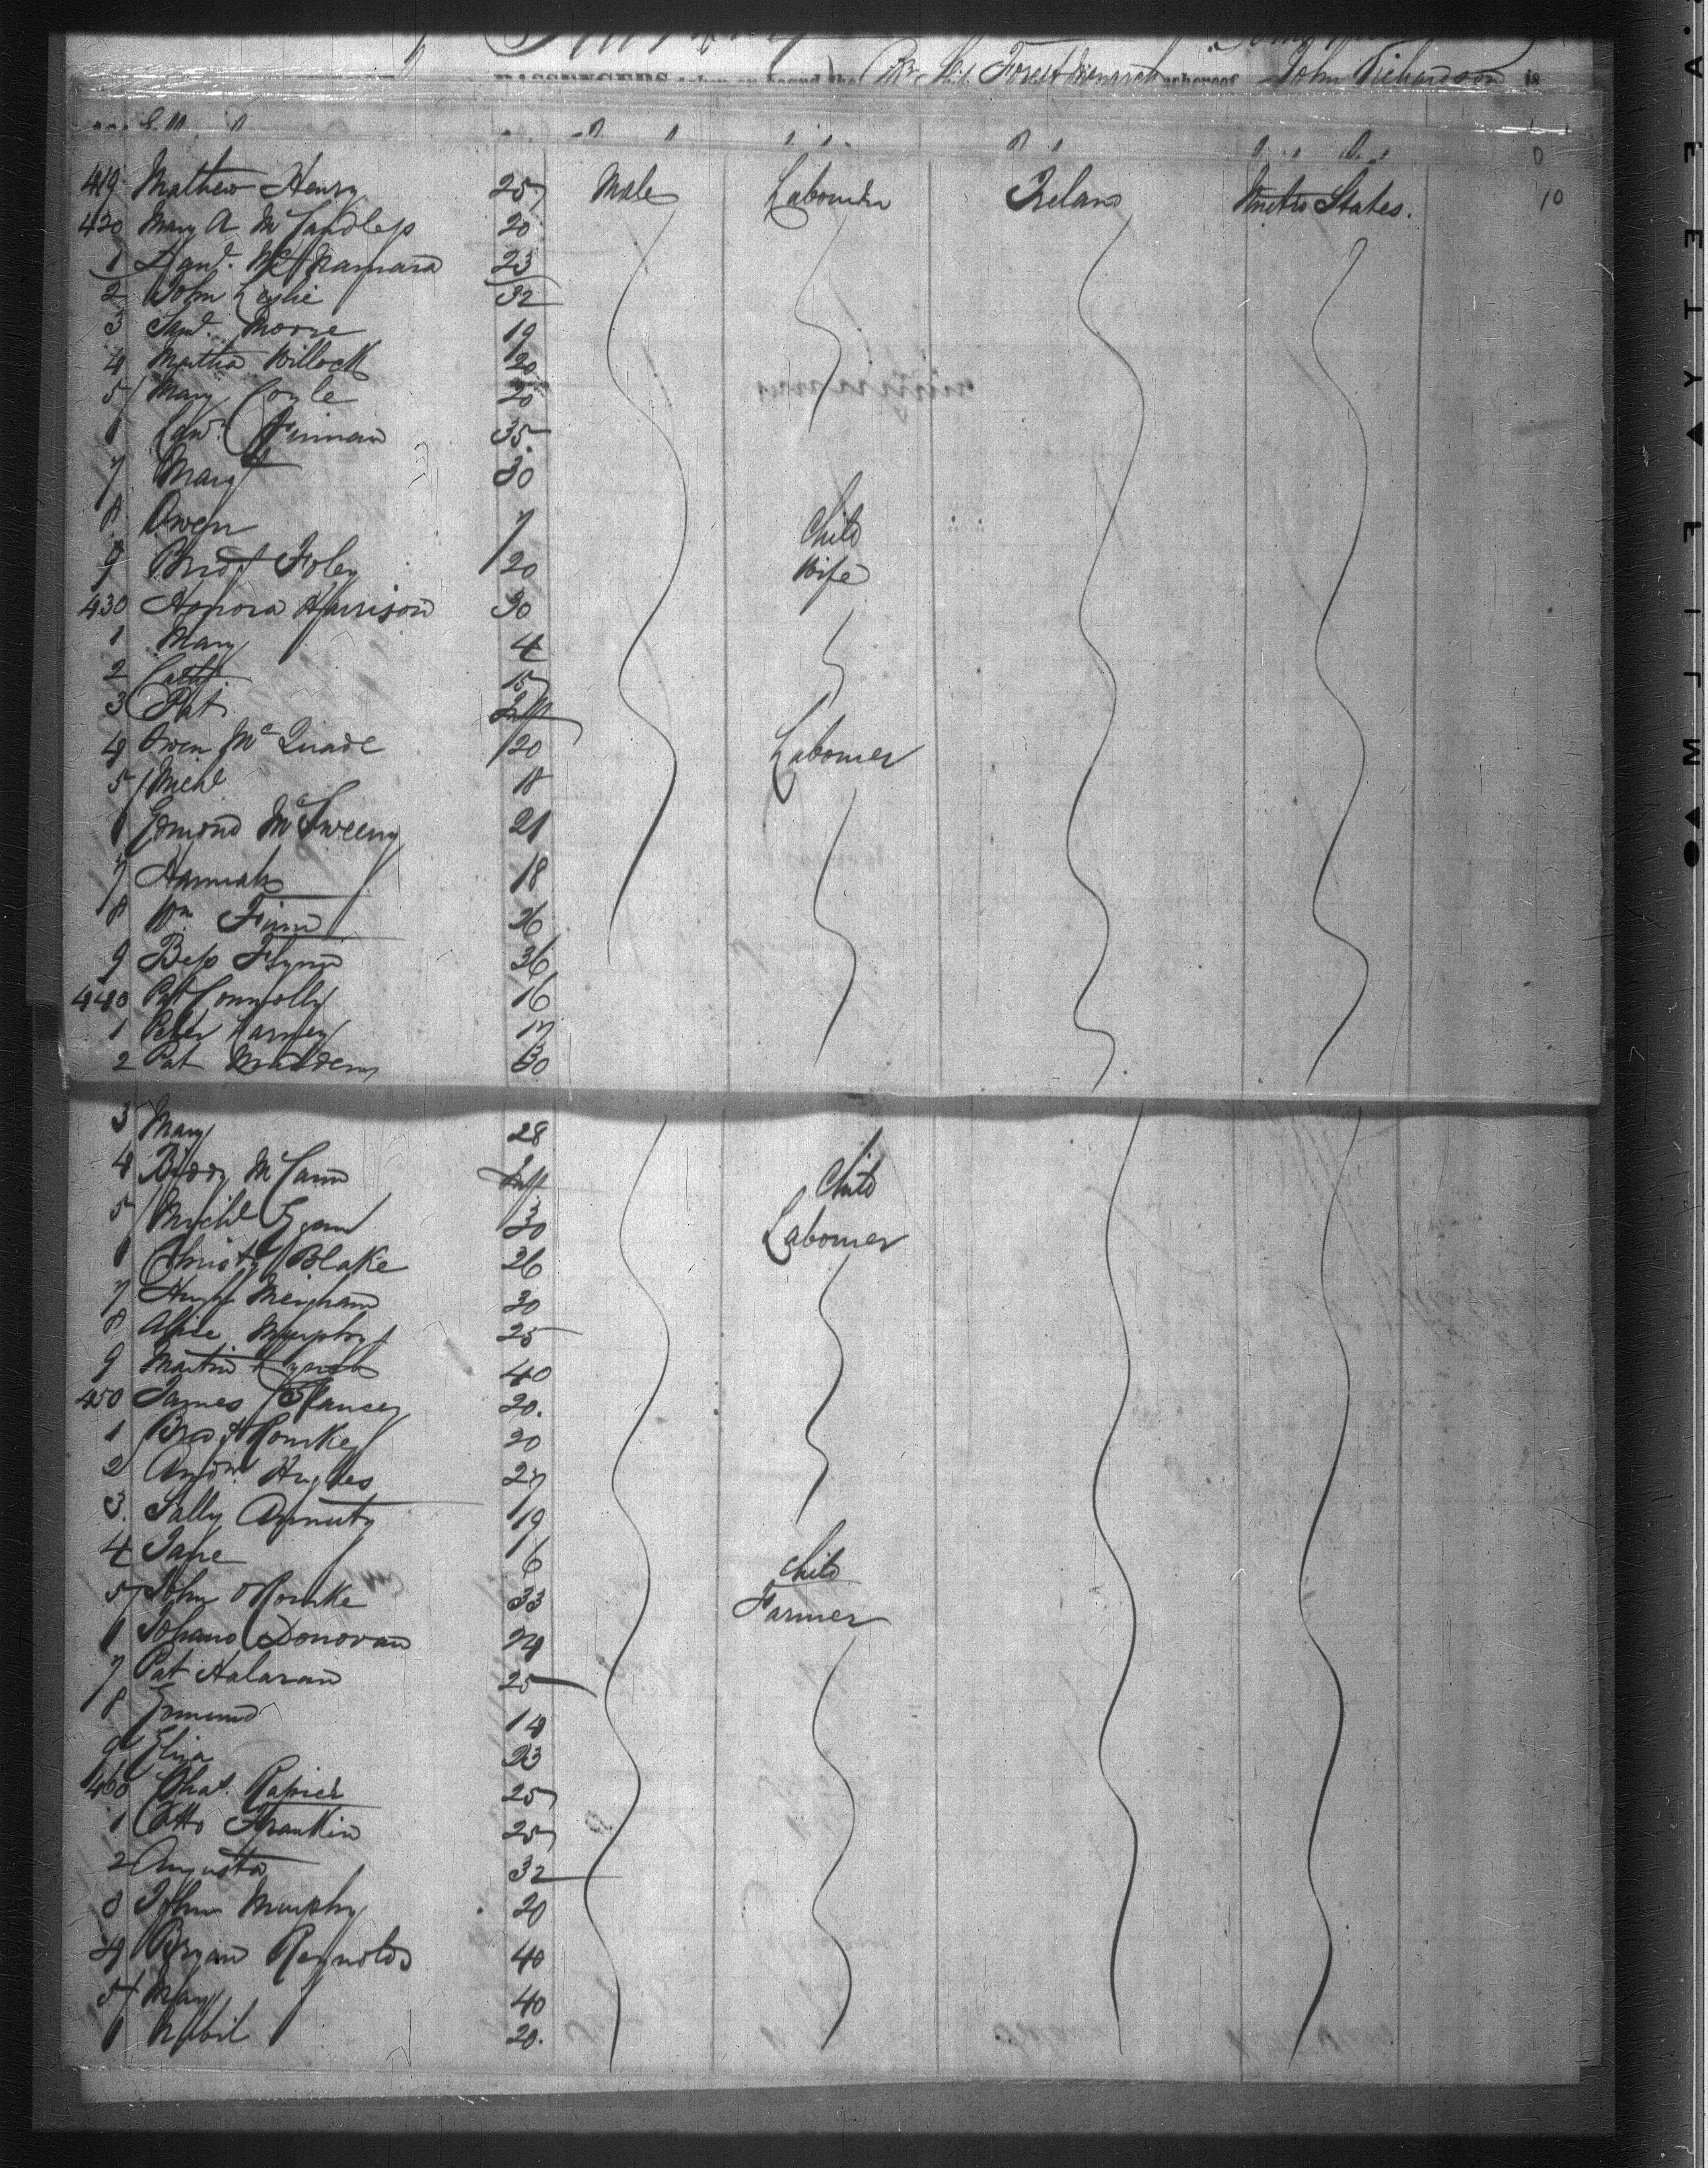 PASSENGERS taken on board the Br. Ship Forest Monarch whereof John Richardson is
419 Mathew Henry 25 Male Labourer Ireland United States. 10
420 Mary A McCandless 20
1 McNamara 23
2 John Leslie 32
3 Saml. Moore 19
4 Martha Willock 20
5 Mary Coyle 20
6 Finnan 35
7 Mary 30
8 Owen 7 Child
9 Bridgt Foley 20 Wife
430 Honora Harrison 30
1 Mary 4
2 Cath 15
3 Pat Inft
4 Owen McQuade 20 Labourer
5 Michl 18
6 Edmond McSweeny 21
7 Hannah 18
8 Wm Finn 26
9 Bess Flynn 36
440 Pat Connolly 16
1 Peter 17
2 Pat Madden 30
3 Mary 28
4 Biddy McCann Inft Child
5 Michl Egan 30 Labourer
6 Christy Blake 26
7 Hugh Meighan 30
8 Alice Murphy 25
9 Martin Lynch 40
450 James Clancey 20.
1 Bridgt Rourke 20
2 Andw. Hughes 27
3. Sally Annuty 19
4 Jane 6 Child
5 John O'Rourke 33 Farmer
6 Johano Donovan 24
7 Pat Halaran 25
8 Edmund 14
9 Eliza 23
460 Chas. 25
1 Otto Franklin 25
2 Augusta 32
3 John Murphy 20
4 Bryan Reynolds 40
5 Mary 40
6 20.
MLIFETYTEA